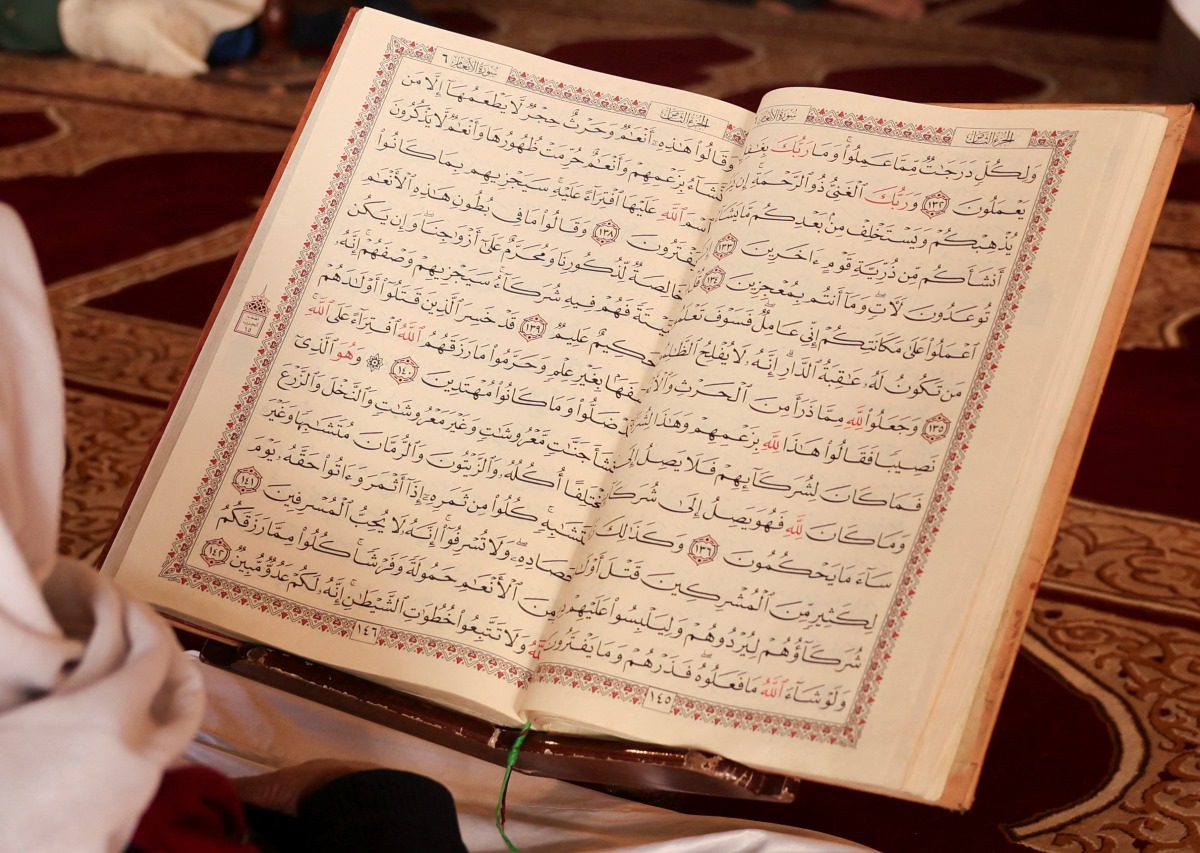 الجُزْءُ الثَّامِنُ سُورَةُ الأَنْعَامِ
وَلِكُلٍّ دَرَجَٰتٌ مِّمَّا عَمِلُوا۟ ۚ وَمَا رَبُّكَ
يَعْمَلُونَ ١٣٢ وَرَبُّكَ ٱلْغَنِىُّ ذُو ٱلرَّحْمَةِ ۚ إِن
يُذْهِبْكُمْ وَيَسْتَخْلِفْ مِنۢ بَعْدِكُم مَّا يَشَآءُ
أَنشَأَكُم مِّن ذُرِّيَّةِ قَوْمٍ ءَاخَرِينَ ١٣٣
تُوعَدُونَ لَءَاتٍ ۖ وَمَآ أَنتُم بِمُعْجِزِينَ ١٣٤ قُلْ
ٱعْمَلُوا۟ عَلَىٰ مَكَانَتِكُمْ إِنِّى عَامِلٌ ۖ فَسَوْفَ
مَن تَكُونُ لَهُۥ عَٰقِبَةُ ٱلدَّارِ ۗ إِنَّهُۥ لَا يُفْلِحُ
١٣٥ وَجَعَلُوا۟ لِلَّهِ مِمَّا ذَرَأَ مِنَ ٱلْحَرْثِ
نَصِيبًا فَقَالُوا۟ هَٰذَا لِلَّهِ بِزَعْمِهِمْ وَهَٰذَا
فَمَا كَانَ لِشُرَكَآئِهِمْ فَلَا يَصِلُ إِلَى
وَمَا كَانَ لِلَّهِ فَهُوَ يَصِلُ إِلَىٰ
سَآءَ مَا يَحْكُمُونَ ١٣٦ وَكَذَٰلِكَ
لِكَثِيرٍ مِّنَ ٱلْمُشْرِكِينَ قَتْلَ
شُرَكَآؤُهُمْ لِيُرْدُوهُمْ وَلِيَلْبِسُوا۟ عَلَيْهِمْ
وَلَوْ شَآءَ ٱللَّهُ مَا فَعَلُوهُ ۖ فَذَرْهُمْ وَمَا يَفْتَرُونَ
١٤٥
الجُزْءُ الثَّامِنُ سُورَةُ الأَنْعَامِ ٦
وَقَالُوا۟ هَٰذِهِۦٓ أَنْعَٰمٌ وَحَرْثٌ حِجْرٌ لَّا يَطْعَمُهَآ إِلَّا مَن
نَّشَآءُ بِزَعْمِهِمْ وَأَنْعَٰمٌ حُرِّمَتْ ظُهُورُهَا وَأَنْعَٰمٌ لَّا يَذْكُرُونَ
ٱسْمَ ٱللَّهِ عَلَيْهَا ٱفْتِرَآءً عَلَيْهِ ۚ سَيَجْزِيهِم بِمَا كَانُوا۟
يَفْتَرُونَ ١٣٨ وَقَالُوا۟ مَا فِى بُطُونِ هَٰذِهِ ٱلْأَنْعَٰمِ
خَالِصَةٌ لِّذُكُورِنَا وَمُحَرَّمٌ عَلَىٰٓ أَزْوَٰجِنَا ۖ وَإِن يَكُن
مَّيْتَةً فَهُمْ فِيهِ شُرَكَآءُ ۚ سَيَجْزِيهِمْ وَصْفَهُمْ ۚ إِنَّهُۥ
حَكِيمٌ عَلِيمٌ ١٣٩ قَدْ خَسِرَ ٱلَّذِينَ قَتَلُوٓا۟ أَوْلَٰدَهُمْ
سَفَهًۢا بِغَيْرِ عِلْمٍ وَحَرَّمُوا۟ مَا رَزَقَهُمُ ٱللَّهُ ٱفْتِرَآءً عَلَى ٱللَّهِ ۚ
قَدْ ضَلُّوا۟ وَمَا كَانُوا۟ مُهْتَدِينَ ١٤٠ ۞ وَهُوَ ٱلَّذِىٓ
أَنشَأَ جَنَّٰتٍ مَّعْرُوشَٰتٍ وَغَيْرَ مَعْرُوشَٰتٍ وَٱلنَّخْلَ وَٱلزَّرْعَ
مُخْتَلِفًا أُكُلُهُۥ وَٱلزَّيْتُونَ وَٱلرُّمَّانَ مُتَشَٰبِهًا وَغَيْرَ
مُتَشَٰبِهٍ ۚ كُلُوا۟ مِن ثَمَرِهِۦٓ إِذَآ أَثْمَرَ وَءَاتُوا۟ حَقَّهُۥ يَوْمَ
حَصَادِهِۦ ۖ وَلَا تُسْرِفُوٓا۟ ۚ إِنَّهُۥ لَا يُحِبُّ ٱلْمُسْرِفِينَ ١٤١
وَمِنَ ٱلْأَنْعَٰمِ حَمُولَةً وَفَرْشًا ۚ كُلُوا۟ مِمَّا رَزَقَكُمُ
ٱللَّهُ وَلَا تَتَّبِعُوا۟ خُطُوَٰتِ ٱلشَّيْطَٰنِ ۚ إِنَّهُۥ لَكُمْ عَدُوٌّ مُّبِينٌ ١٤٢
١٤٦